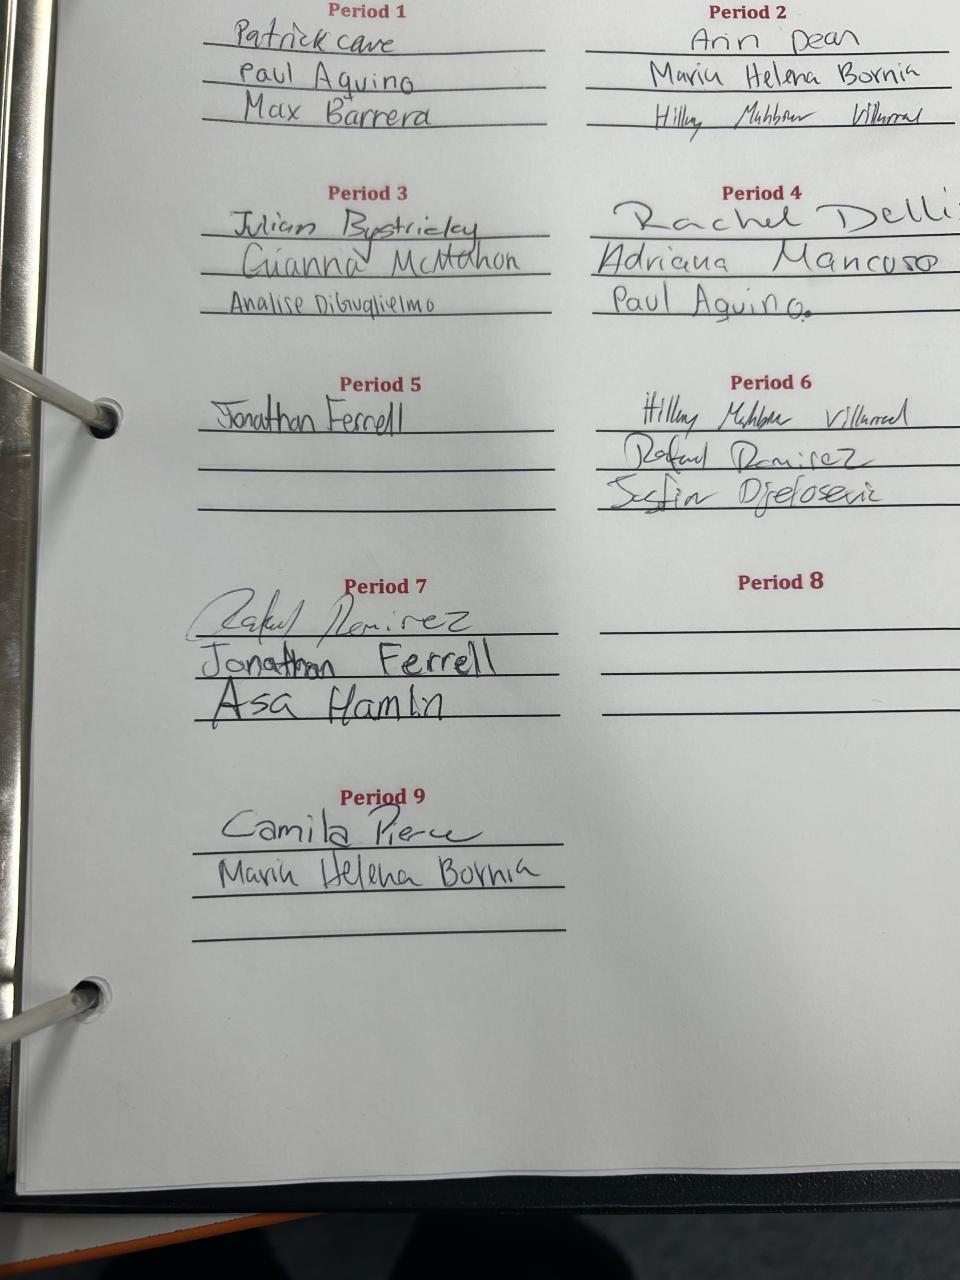 Period 1
Patrick cave
Paul Aquino
Max Barrera
Period 2
Arin Dean
Maria Helena Bornia
Hillary Villarreal
Period 3
Julian Bystricky
Gianna McMahon
Analise DiGuglielmo
Period 4
Rachel Delli
Adriana Mancuso
Paul Aquino.
Period 5
Jonathan Ferrell
Period 6
Hillary Villarreal
Rafael Ramirez
Djelosevic
Period 7
Rafael Ramirez
Jonathan Ferrell
Asa Hamlin
Period 8
Period 9
Camila Pierce
Maria Helena Bornia